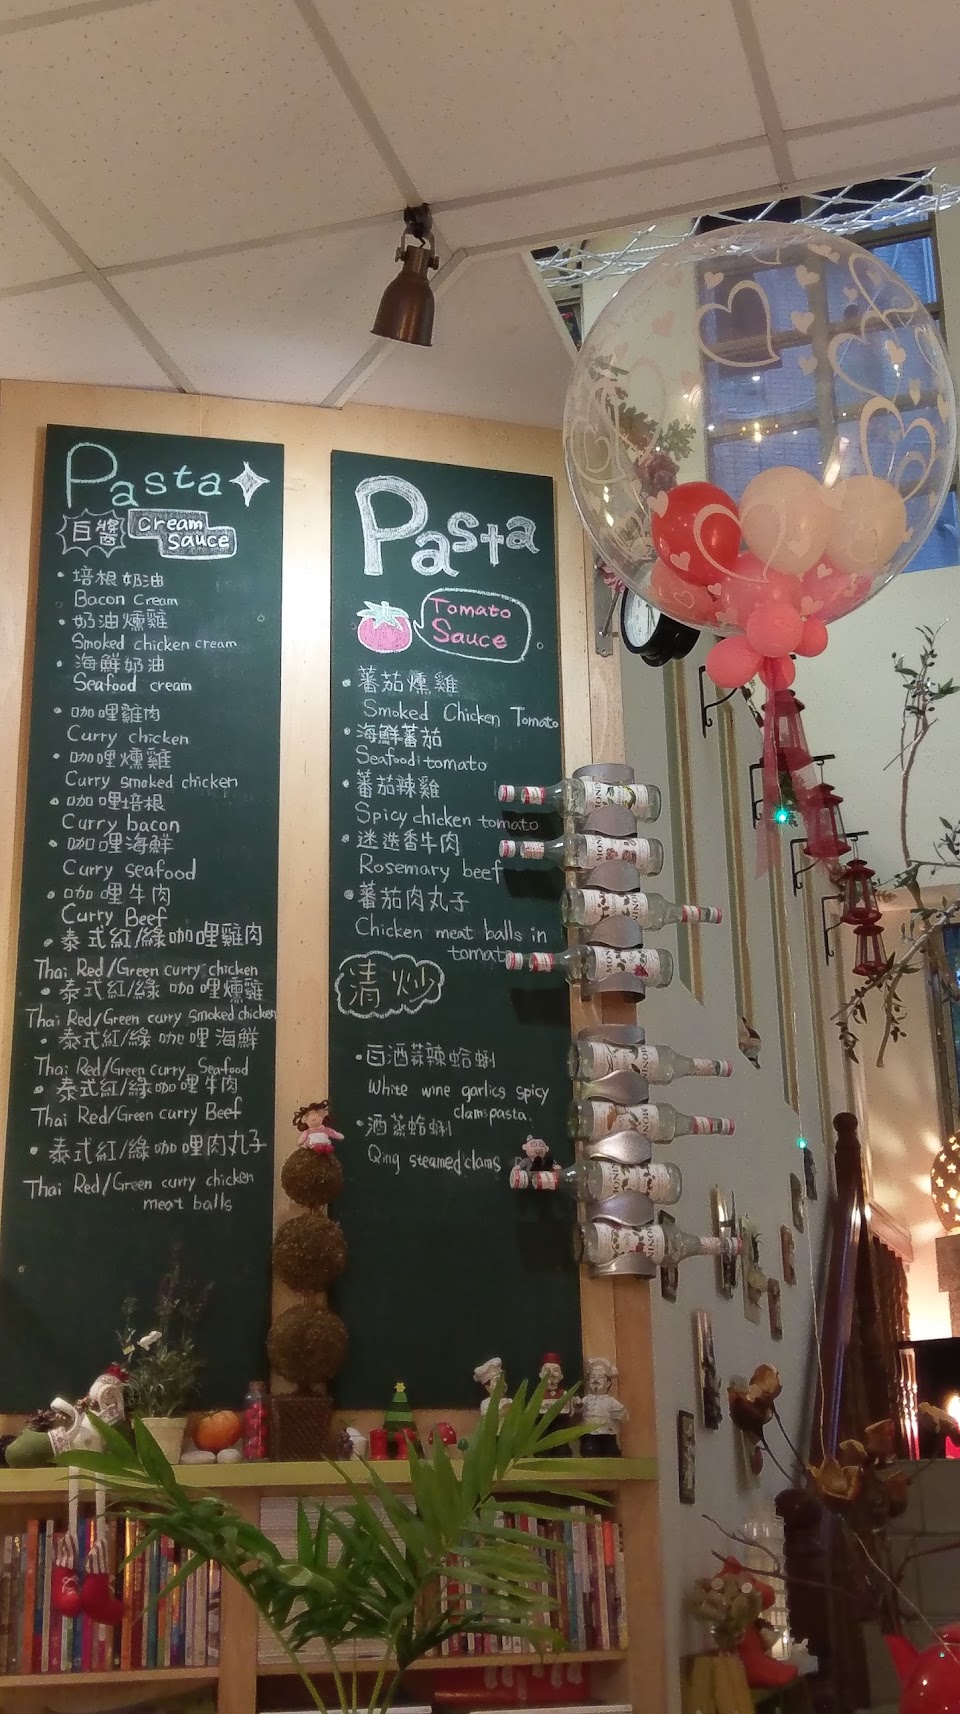 Pasta
白醬
Cream
Sauce
・培根奶油
Bacon Cream
・奶油燻雞
Smoked chicken cream
・海鮮奶油
Seafood cream
・咖哩雞肉
Curry chicken
・咖哩燻雞
Curry smoked chicken
・咖哩培根
Curry bacon
・咖哩海鮮
Curry seafood
・咖哩牛肉
Curry Beef
・泰式紅/綠咖哩雞肉
Thai Red/Green curry chicken
・泰式紅/綠咖哩燻雞
Thai Red/Green curry smoked chicken
・泰式紅/綠咖哩海鮮
Thai Red/Green curry Seafood
・泰式紅/綠咖哩牛肉
Thai Red/Green curry Beef
・泰式紅/綠咖哩肉丸子
Thai Red/Green curry chicken
meat balls
Pasta
Tomato
Sauce
・蕃茄燻雞
Smoked Chicken Tomato
・海鮮蕃茄
Seafood tomato
・蕃茄辣雞
Spicy chicken tomato
・迷迭香牛肉
Rosemary beef
・蕃茄肉丸子
Chicken meat balls in
tomat
清炒
・白酒蒜辣蛤蜊
White wine garlics spicy
clams pasta.
・酒蒸蛤蜊
Qing steamed clams
MONIN
MONIN
MONIN
MONIN
MONIN
MONIN
MONIN
MONIN